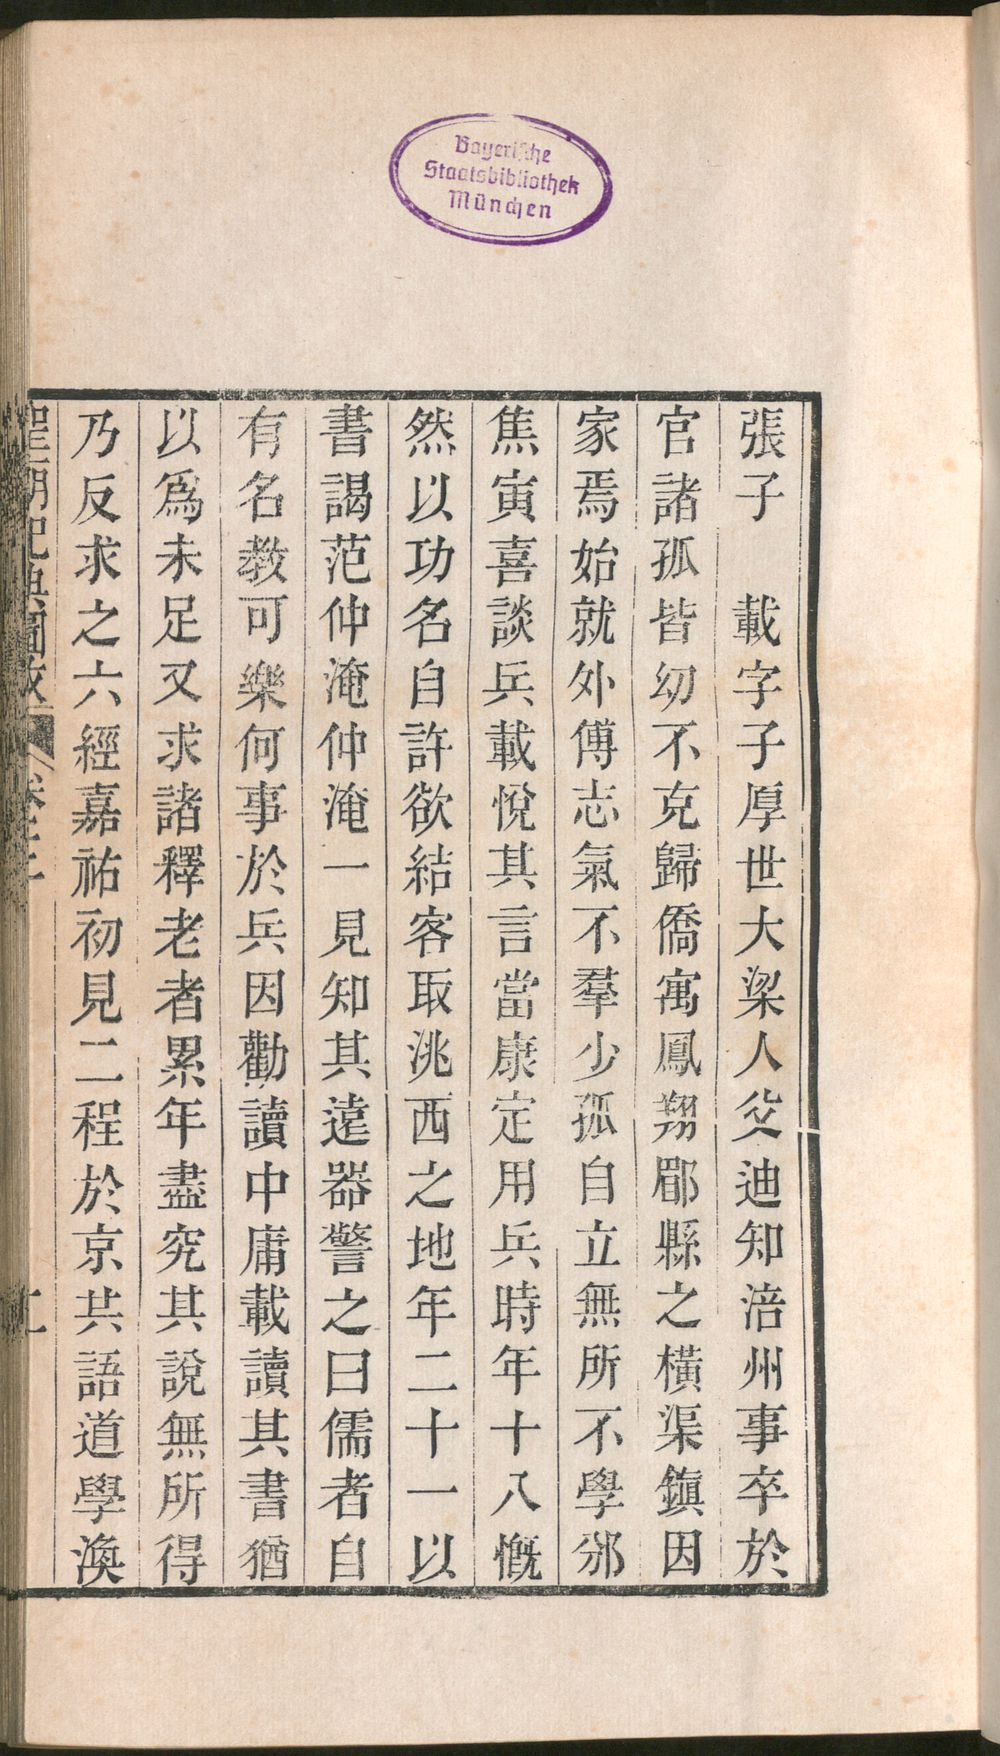 Bayerische
Staatsbibliothek
München
張子　載字子厚世大梁人父迪知涪州事卒於
官諸孤皆幼不克歸僑寓鳳翔郿縣之橫渠鎮因
家焉始就外傅志氣不羣少孤自立無所不學邠
焦寅喜談兵載悅其言當康定用兵時年十八慨
然以功名自許欲結客取洮西之地年二十一以
書謁范仲淹仲淹一見知其遠器警之曰儒者自
有名教可樂何事於兵因勸讀中庸載讀其書猶
以爲未足又求諸釋老者累年盡究其說無所得
乃反求之六經嘉祐初見二程於京共語道學渙